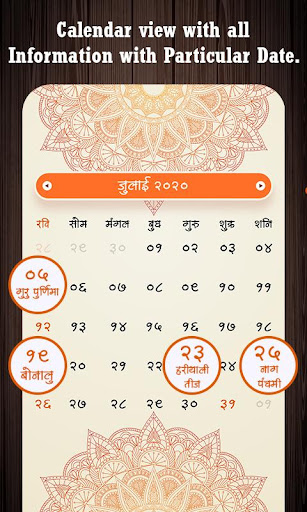 Calendar view with all
Information with Particular Date.
जुलाई २०२०
रवि सोम मंगल बुध गुरु शुक्र शनि
२८ २९ ३० ०१ ०२ ०३ ०४
०५ ०६ ०७ ०८ ०९ १० ११
गुरु पुर्णिमा
१२ १३ १४ १५ १६ १७ १८
१९ २० २१ २२ २३ २४ २५
बोनालु
हरीयाली
तीज
नाग
पंचमी
२६ २७ २८ २९ ३० ३१ ०१